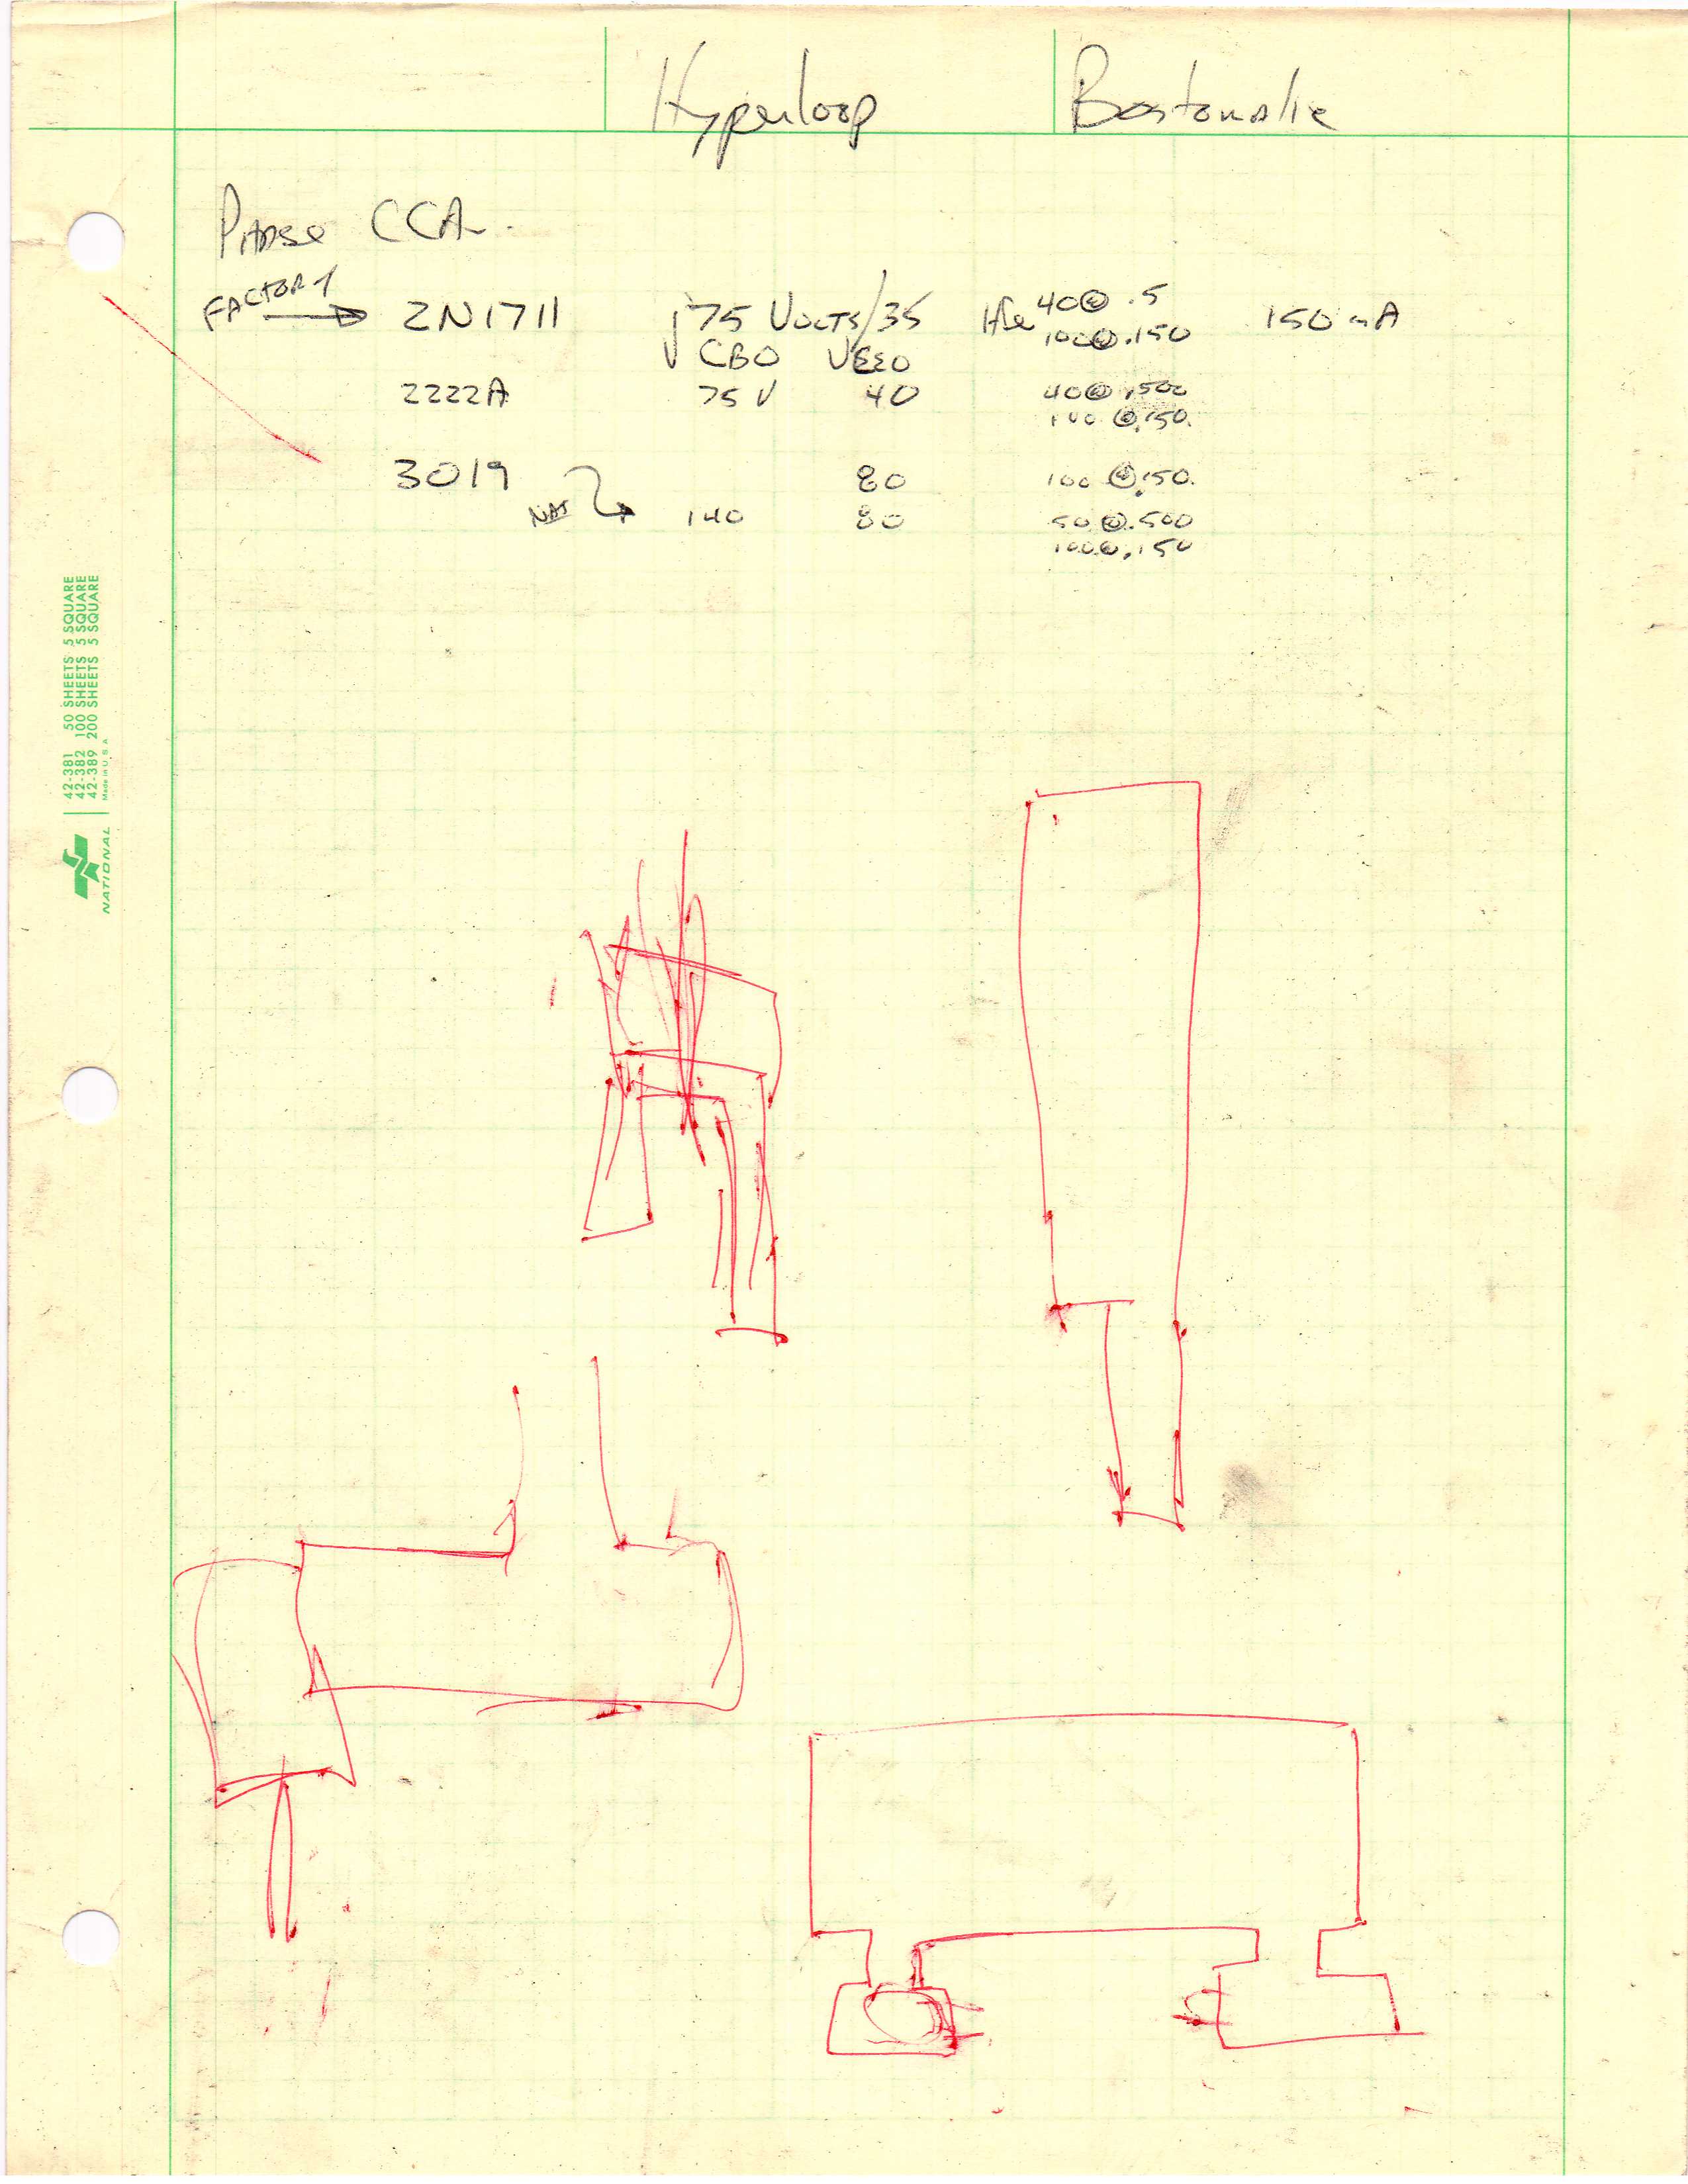 Hyperloop Bostonalie
Phase CCA.
FACTORY → 2N1711 75 VOLTS/35 Hfe 40@ .5 150 mA
100@.150
VCBO VEEO
2222A 75 V 40 40@ .500
100 @.150.
3019 80 100 @.150.
NAT 140 80 50 @.500
100@.150
42-381 50 SHEETS 5 SQUARE
42-382 100 SHEETS 5 SQUARE
42-389 200 SHEETS 5 SQUARE
Made in U.S.A
NATIONAL